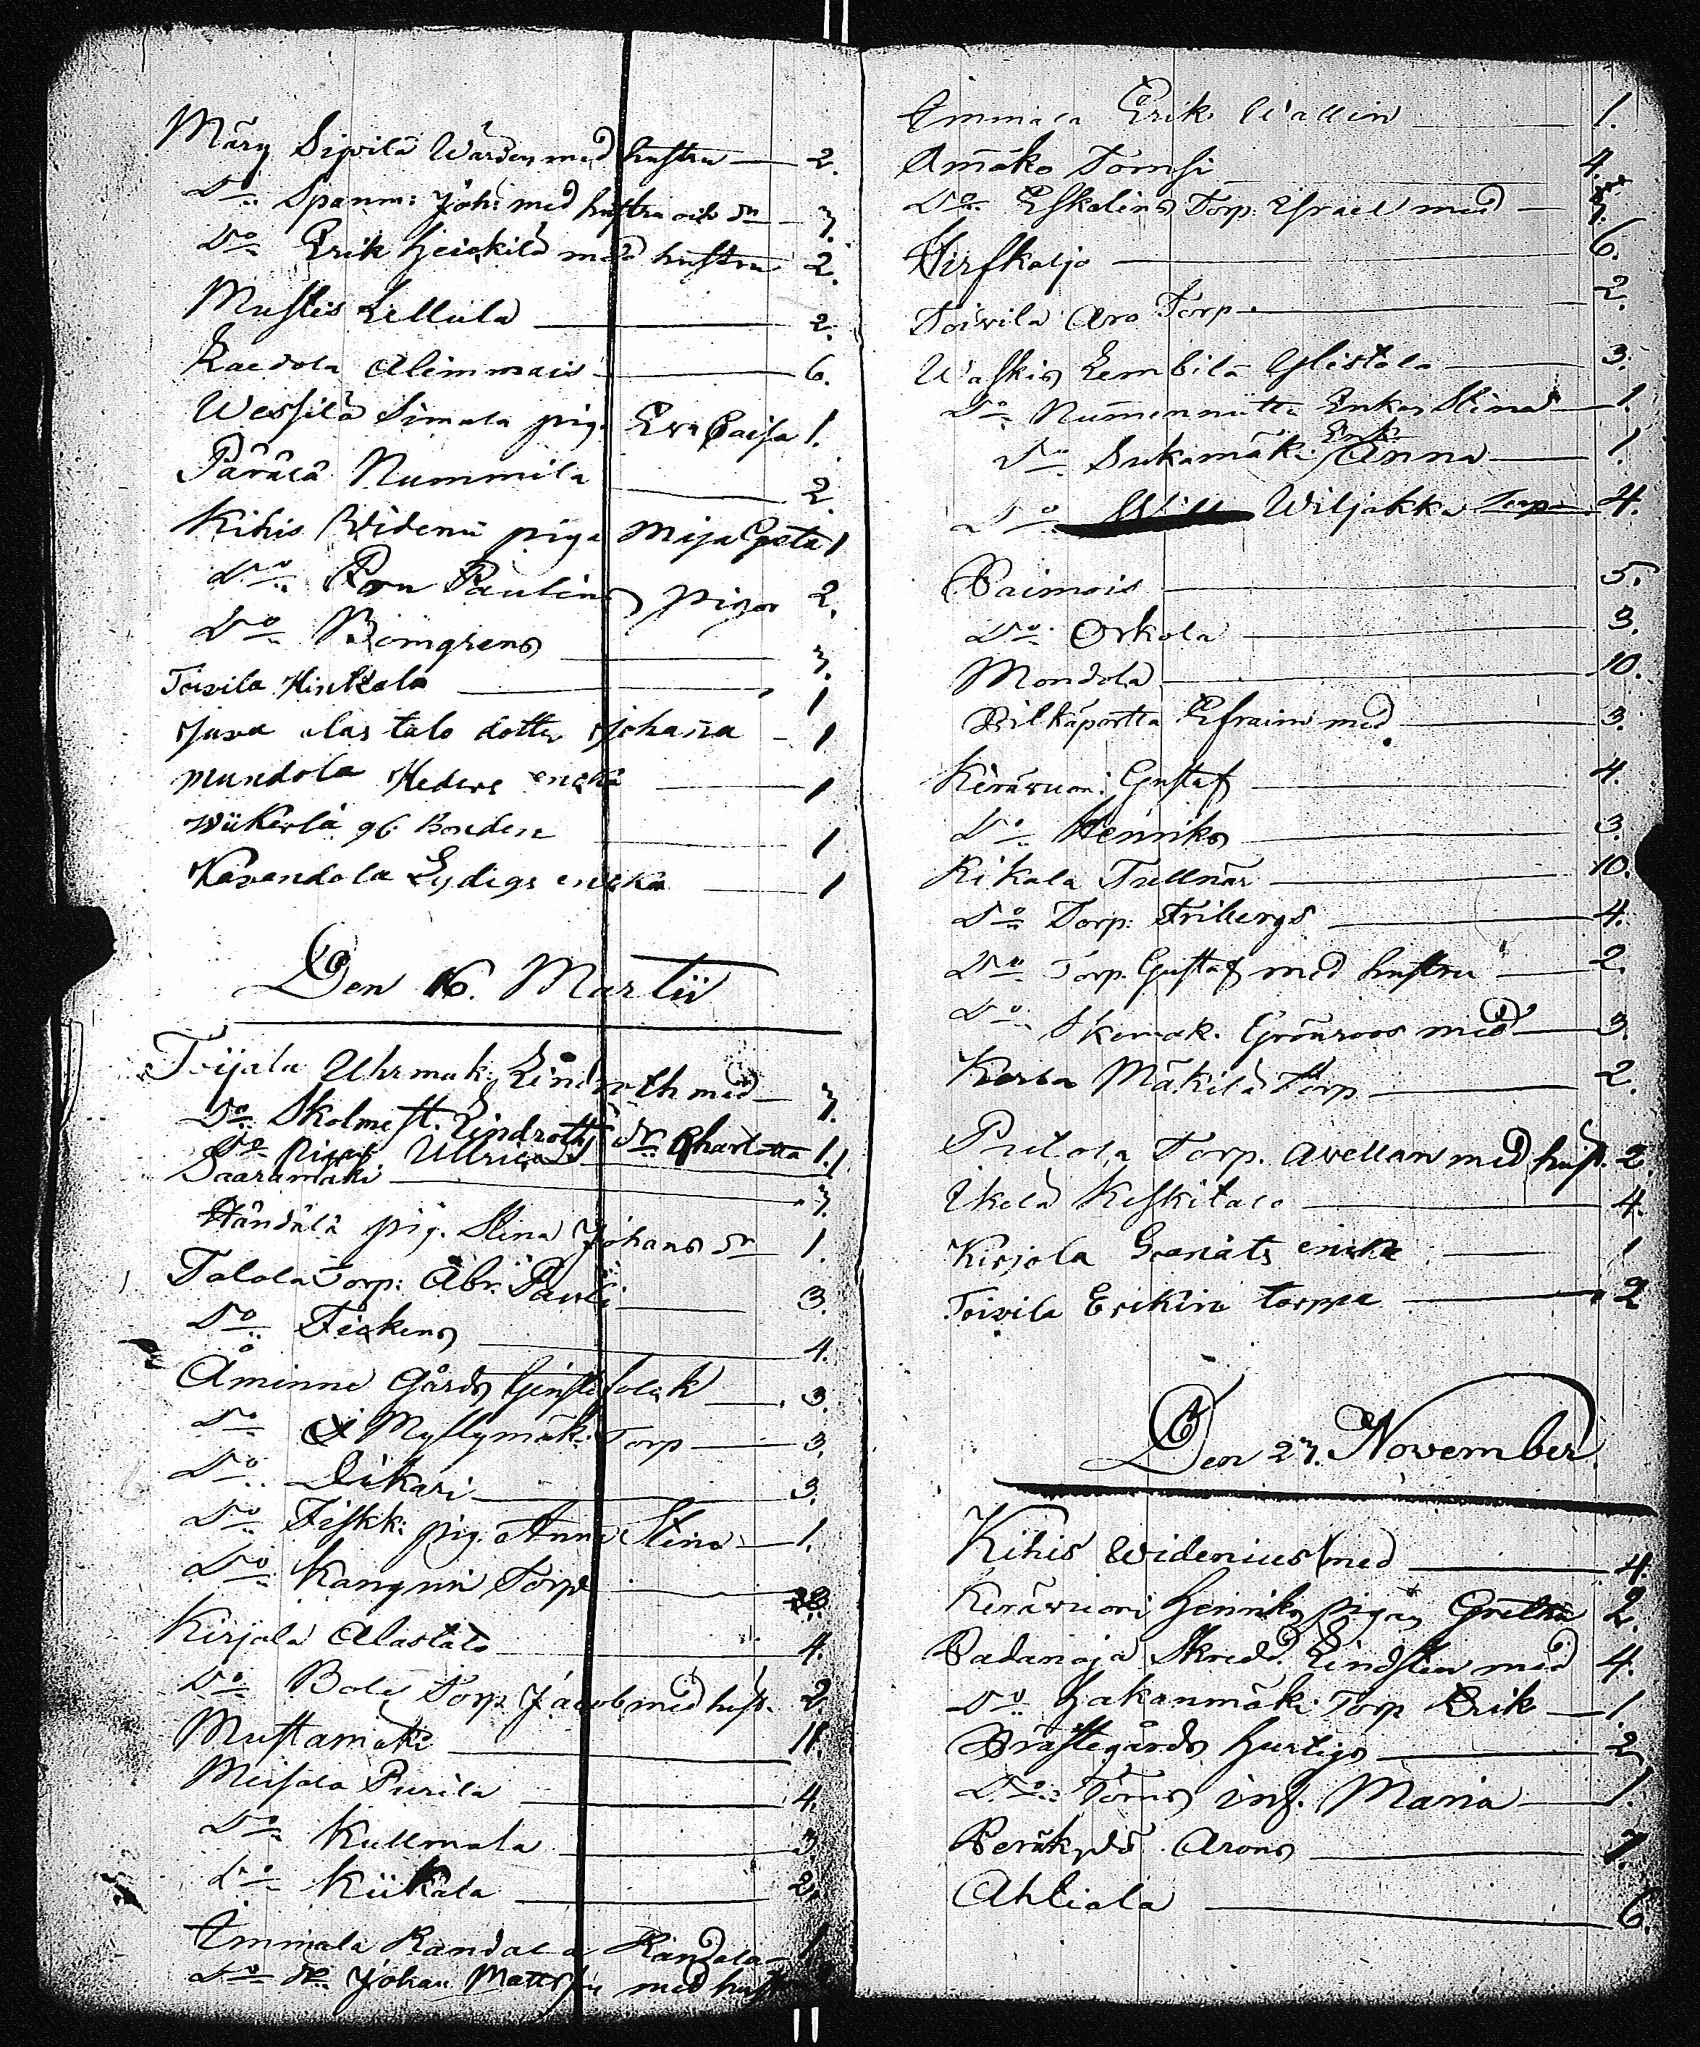 Märy Sipilä Wärden med hustru — 2.
Do Spanm: Joh: med hustru och dr — 3.
Do Erik Heickilä med hustru 2.
Mustis Lellula — 2.
Kaedola Alimmais — 6.
Wessilä Simala pig. Eva Caisa 1.
Pärälä Nummila — 2.
Kihis Widenii piga Maja Greta 1
Do Paulins pigor 2.
Do Biömgrens — 3.
Toivila Hinkala — 1
alas talo dotter Johanna — 1
Mundola Heders enckä — 1
Wiikerlä gb. Bonden — 1
Kavandola Lydigs enckä — 1
Den 16. Martii
Toijala Uhrmak: Lindroth med — 3.
Do Skolmest. Lindroths dr. Charlotta 1.
Do Pigan Ullrica — 1
Saarämäki — 3.
Händälä pig. Stina Johans dr — 1.
Talola Torp: Abr. Pauli — 3.
Do Fickens — 4.
Åminne Gårds folck — 3.
Do Myllymäk: Torp — 3.
Do Dikari — 3.
Do Fiskk: pig. Anna Stina — 1.
Do Kangvin Torp —
Kirjala Alastalo — 4.
Do Bole Torp. Jacob med hust. 2.
Mustamäki — 11.
Meisala Purila — 4.
Do Kullmala — 3.
Do Kiikala — 2.
Immala Randala Randala — 1
Do Johan Mattsson med hust
Immala Erik Wallin — 1.
Ämäko Tomsi — 4.
Do Eskolins Torp. Israel med —
Hirfkaljo — 6.
Toivila Aro Torp. — 2.
Waskio Lembilä Ylistalo — 3.
Do Nummenmitta Enkan Stina — 1.
Do Sukamäki Enk. Anna — 1.
Do Wiljakka Torp. 4.
Paimais — 5.
Do Orkola — 3.
Mondola — 10.
Pilkäportta Efraim med — 3.
Kerävuori Gustaf — 4.
Do Henriks — 3.
Rikala Tullnär — 10.
Do Torp. Fribergs — 4.
Do Torp. Gustaf med hustru — 2.
Do Skomak. Grönroos med — 3.
Korba Mäkilä Torp — 2.
Pritola Torp. Avellan med hust. 2.
Ikelä Keskitalo — 4.
Kirjola Granats encka — 1
Toivila Erikin torppa — 2
Den 27. November.
Kihis Widenius med — 4.
Kerävuori Henriks pigan Gretta 2.
Padanoja Skredd. Lindsten med 4.
Do Hakanmäki Torp Erik — 1.
Prästegårds Hurtigs — 2
Do Törns inh. Maria — 1.
Peräkylä Arons — 7.
Ahtiala — 6.